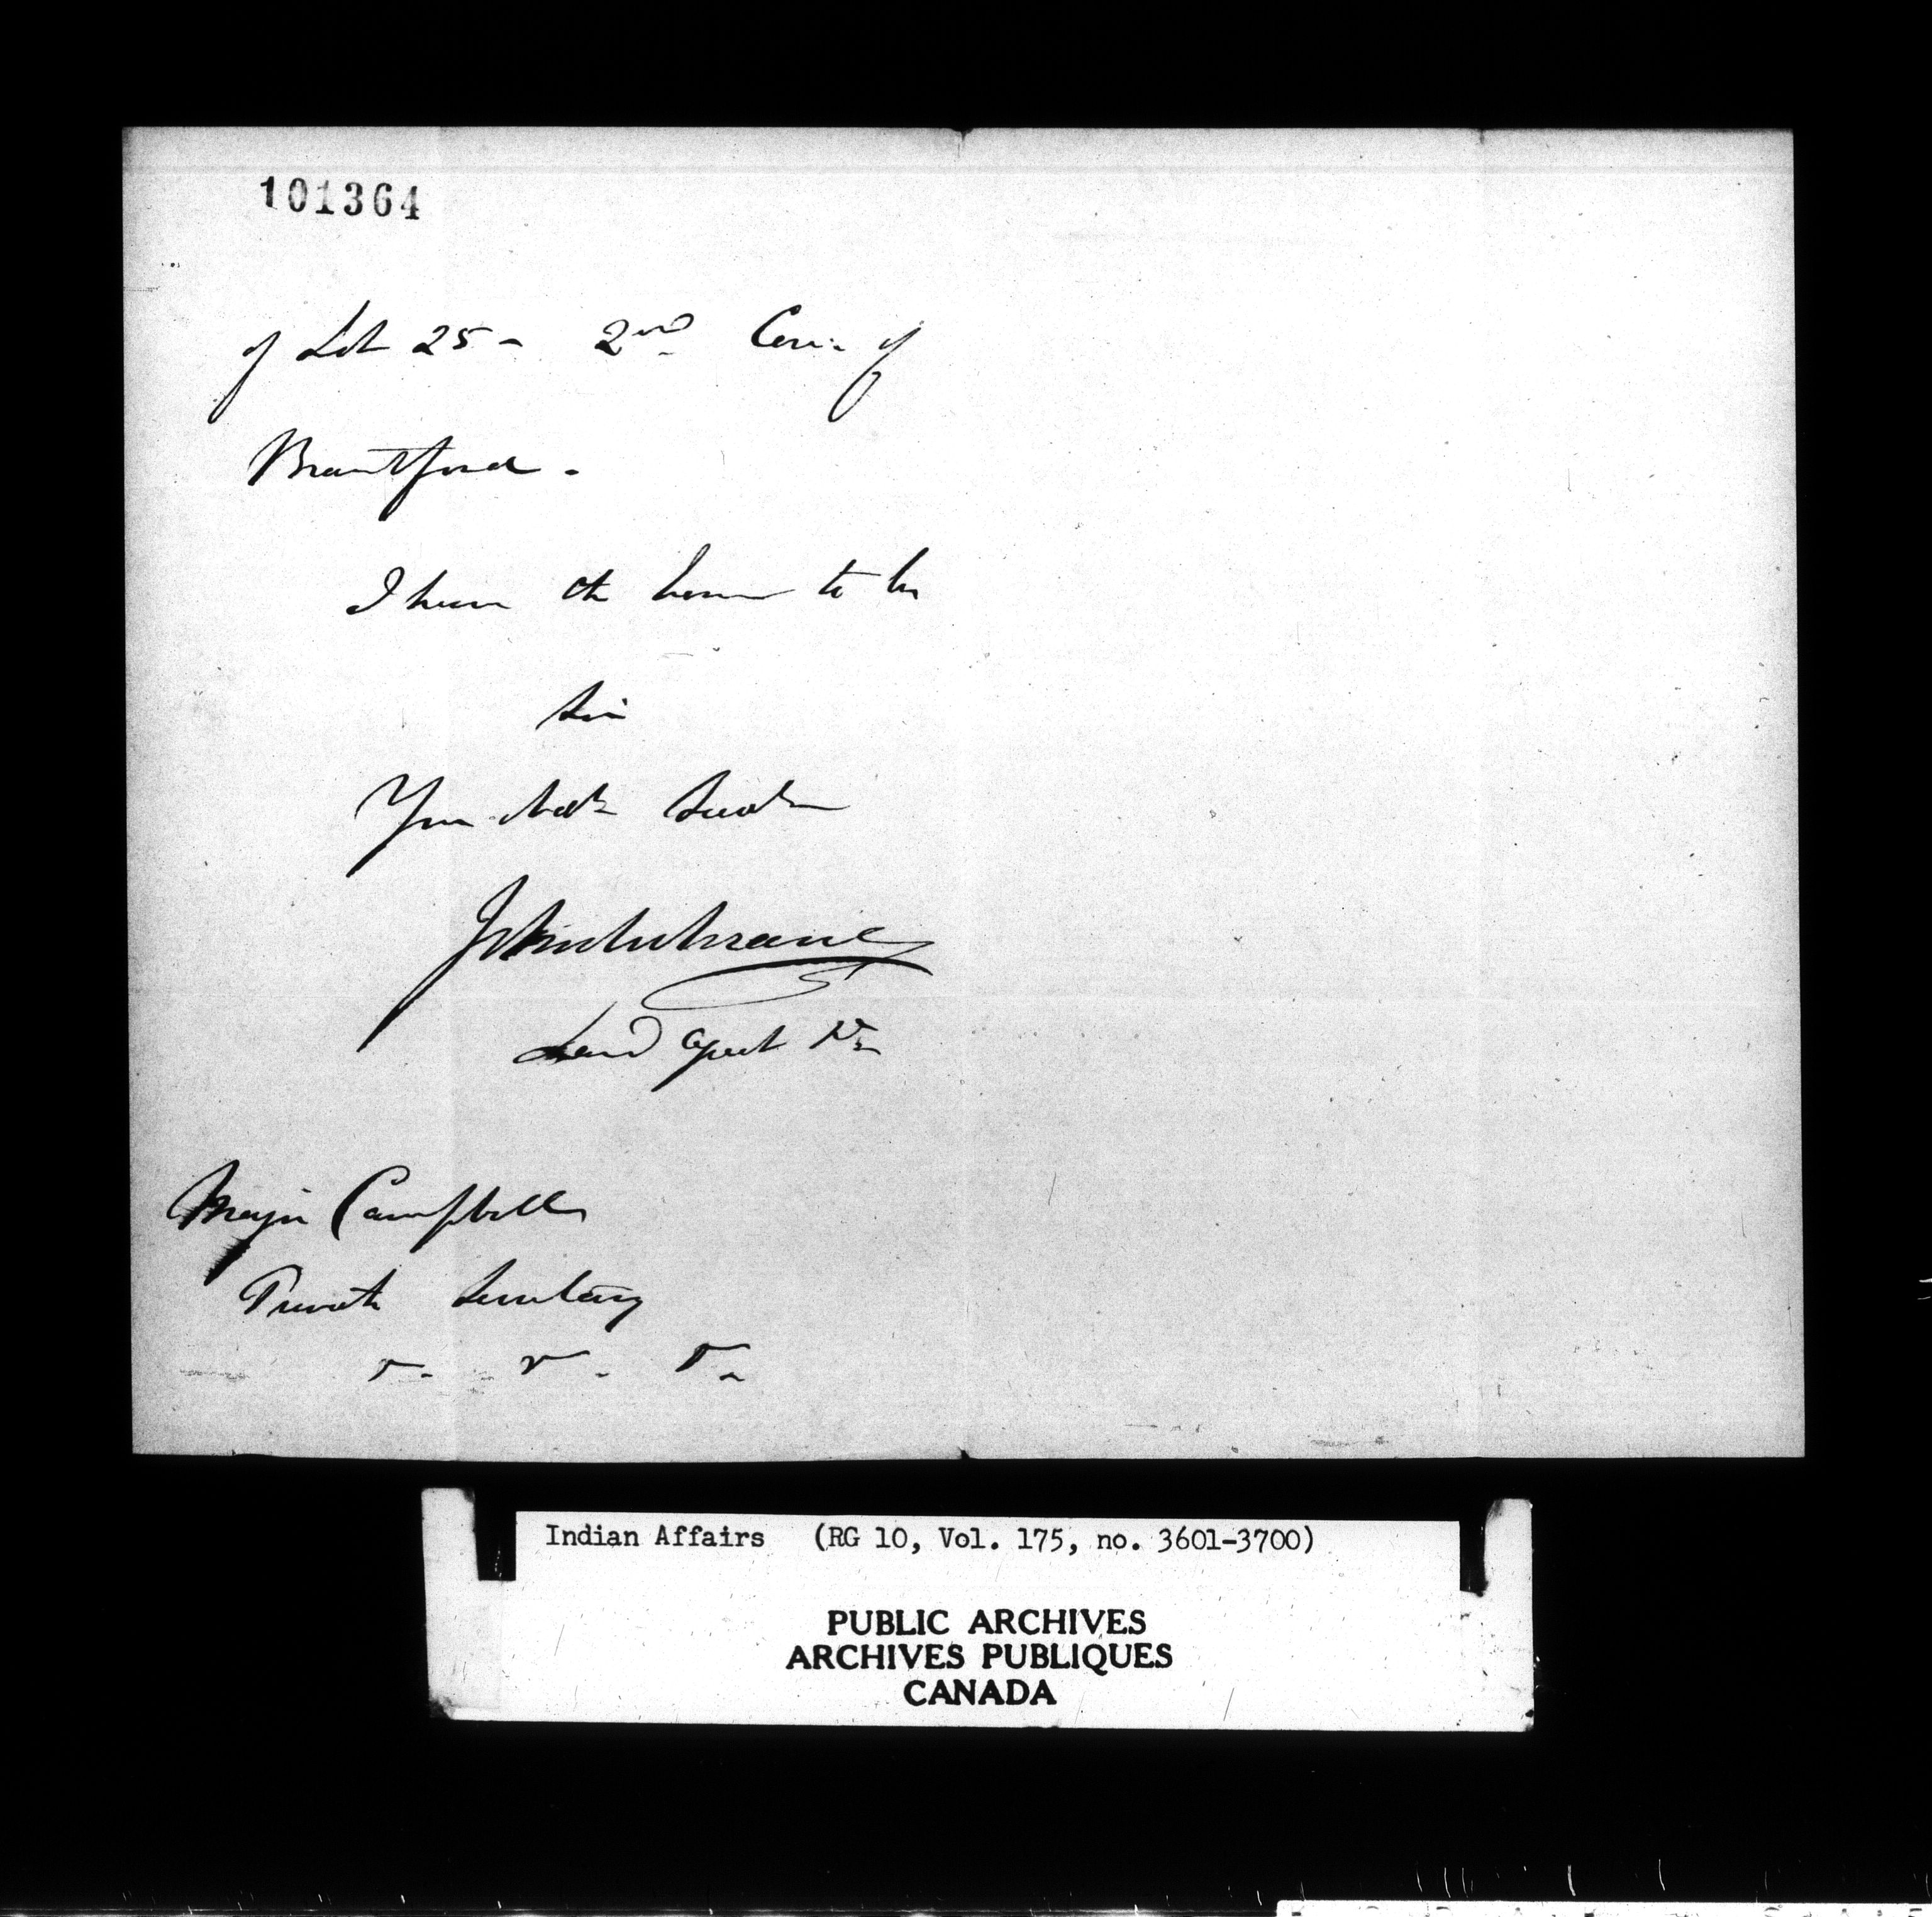 101364
of Lot 25 - 2nd Con. of
Brantford -
I have the honor to be
Sir
Your Obedt Servt
Land Agent
Major Campbell
Private Secretary
Indian Affairs (RG 10, Vol. 175, no. 3601-3700)
PUBLIC ARCHIVES
ARCHIVES PUBLIQUES
CANADA